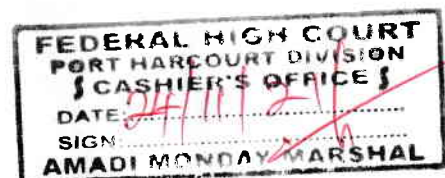 FEDERAL HIGH COURT
PORT HARCOURT DIVISION
CASHIER'S OFFICE
DATE: 24/11/21
SIGN
AMADI MONDAY MARSHAL